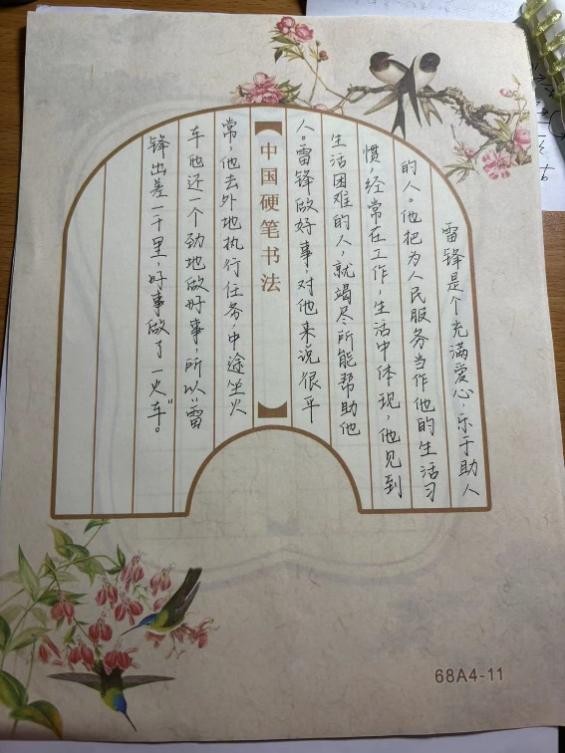 雷锋是个充满爱心，乐于助人
的人。他把为人民服务当作他的生活习
惯，经常在工作，生活中体现，他见到
生活困难的人，就竭尽所能帮助他
人。雷锋做好事，对他来说很平
中国硬笔书法
常，他去外地执行任务，中途坐火
车他还一个劲地做好事，所以“雷
锋出差一千里，好事做了一火车”。
68A4-11